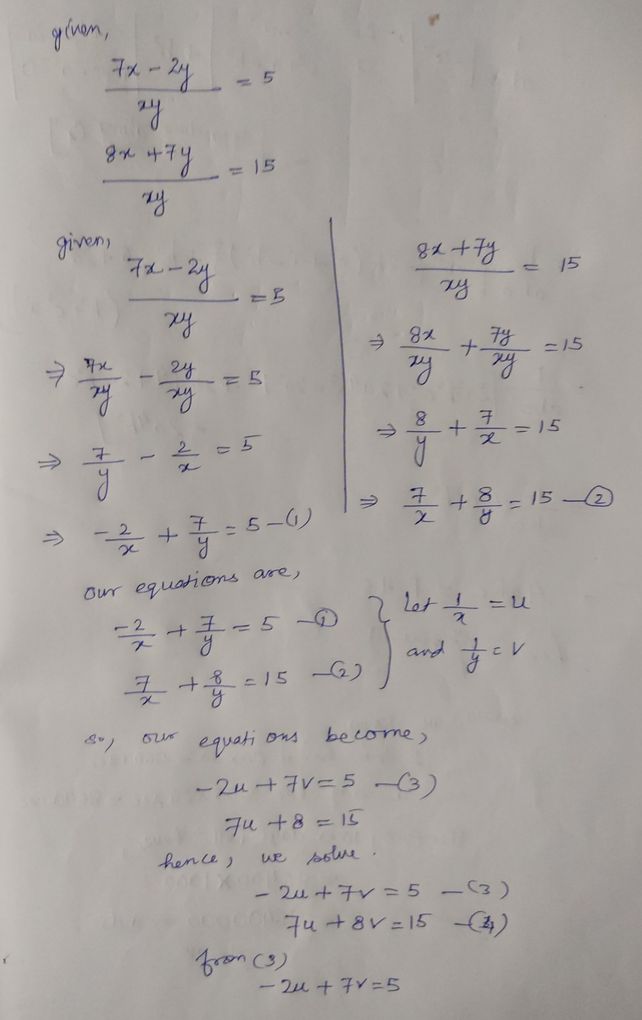 given,
(7x - 2y)/xy = 5
(8x + 7y)/xy = 15
given,
(7x - 2y)/xy = 5
⇒ 7x/xy - 2y/xy = 5
⇒ 7/y - 2/x = 5
⇒ -2/x + 7/y = 5 -(1)
(8x + 7y)/xy = 15
⇒ 8x/xy + 7y/xy = 15
⇒ 8/y + 7/x = 15
⇒ 7/x + 8/y = 15 -②
our equations are,
-2/x + 7/y = 5 -①
7/x + 8/y = 15 -(2)
Let 1/x = u
and 1/y = v
so, our equations become,
-2u + 7v = 5 -(3)
7u + 8 = 15
hence, we solve.
-2u + 7v = 5 -(3)
7u + 8v = 15 -(4)
from (3)
-2u + 7v = 5